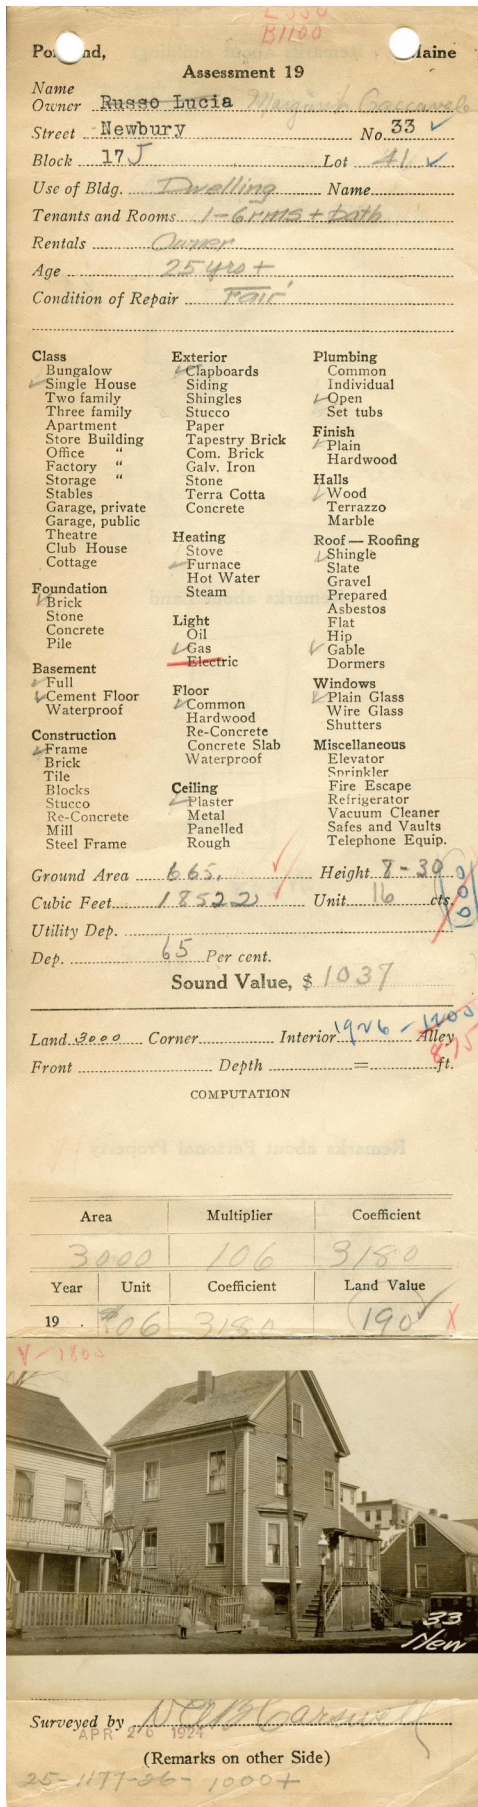 L550
B1100
Portland, Maine
Assessment 19
Name
Owner Russo Lucia
Street Newbury No. 33 ✓
Block 17 J Lot 41 ✓
Use of Bldg. Dwelling Name
Tenants and Rooms 1-6 rms + bath
Rentals Owner
Age 25 yrs +
Condition of Repair Fair
Class
Bungalow
Single House
Two family
Three family
Apartment
Store Building
Office "
Factory "
Storage "
Stables
Garage, private
Garage, public
Theatre
Club House
Cottage
Foundation
Brick
Stone
Concrete
Pile
Basement
Full
Cement Floor
Waterproof
Construction
Frame
Brick
Tile
Blocks
Stucco
Re-Concrete
Mill
Steel Frame
Exterior
Clapboards
Siding
Shingles
Stucco
Paper
Tapestry Brick
Com. Brick
Galv. Iron
Stone
Terra Cotta
Concrete
Heating
Stove
Furnace
Hot Water
Steam
Light
Oil
Gas
Electric
Floor
Common
Hardwood
Re-Concrete
Concrete Slab
Waterproof
Ceiling
Plaster
Metal
Panelled
Rough
Plumbing
Common
Individual
Open
Set tubs
Finish
Plain
Hardwood
Halls
Wood
Terrazzo
Marble
Roof — Roofing
Shingle
Slate
Gravel
Prepared
Asbestos
Flat
Hip
Gable
Dormers
Windows
Plain Glass
Wire Glass
Shutters
Miscellaneous
Elevator
Sprinkler
Fire Escape
Refrigerator
Vacuum Cleaner
Safes and Vaults
Telephone Equip.
Ground Area 665. Height 8-30
Cubic Feet 18522 Unit 16 cts.
900
Utility Dep.
Dep. 65 Per cent.
Sound Value, $ 1037
Land 3000 Corner Interior 1926 - 1200 Alley
875
Front Depth = ft.
COMPUTATION
Area Multiplier Coefficient
3000 106 3180
Year Unit Coefficient Land Value
19 . 06 3180 190 X
V-1800
33
New
Surveyed by
APR 26 1924
(Remarks on other Side)
25-1177-26- 1000+